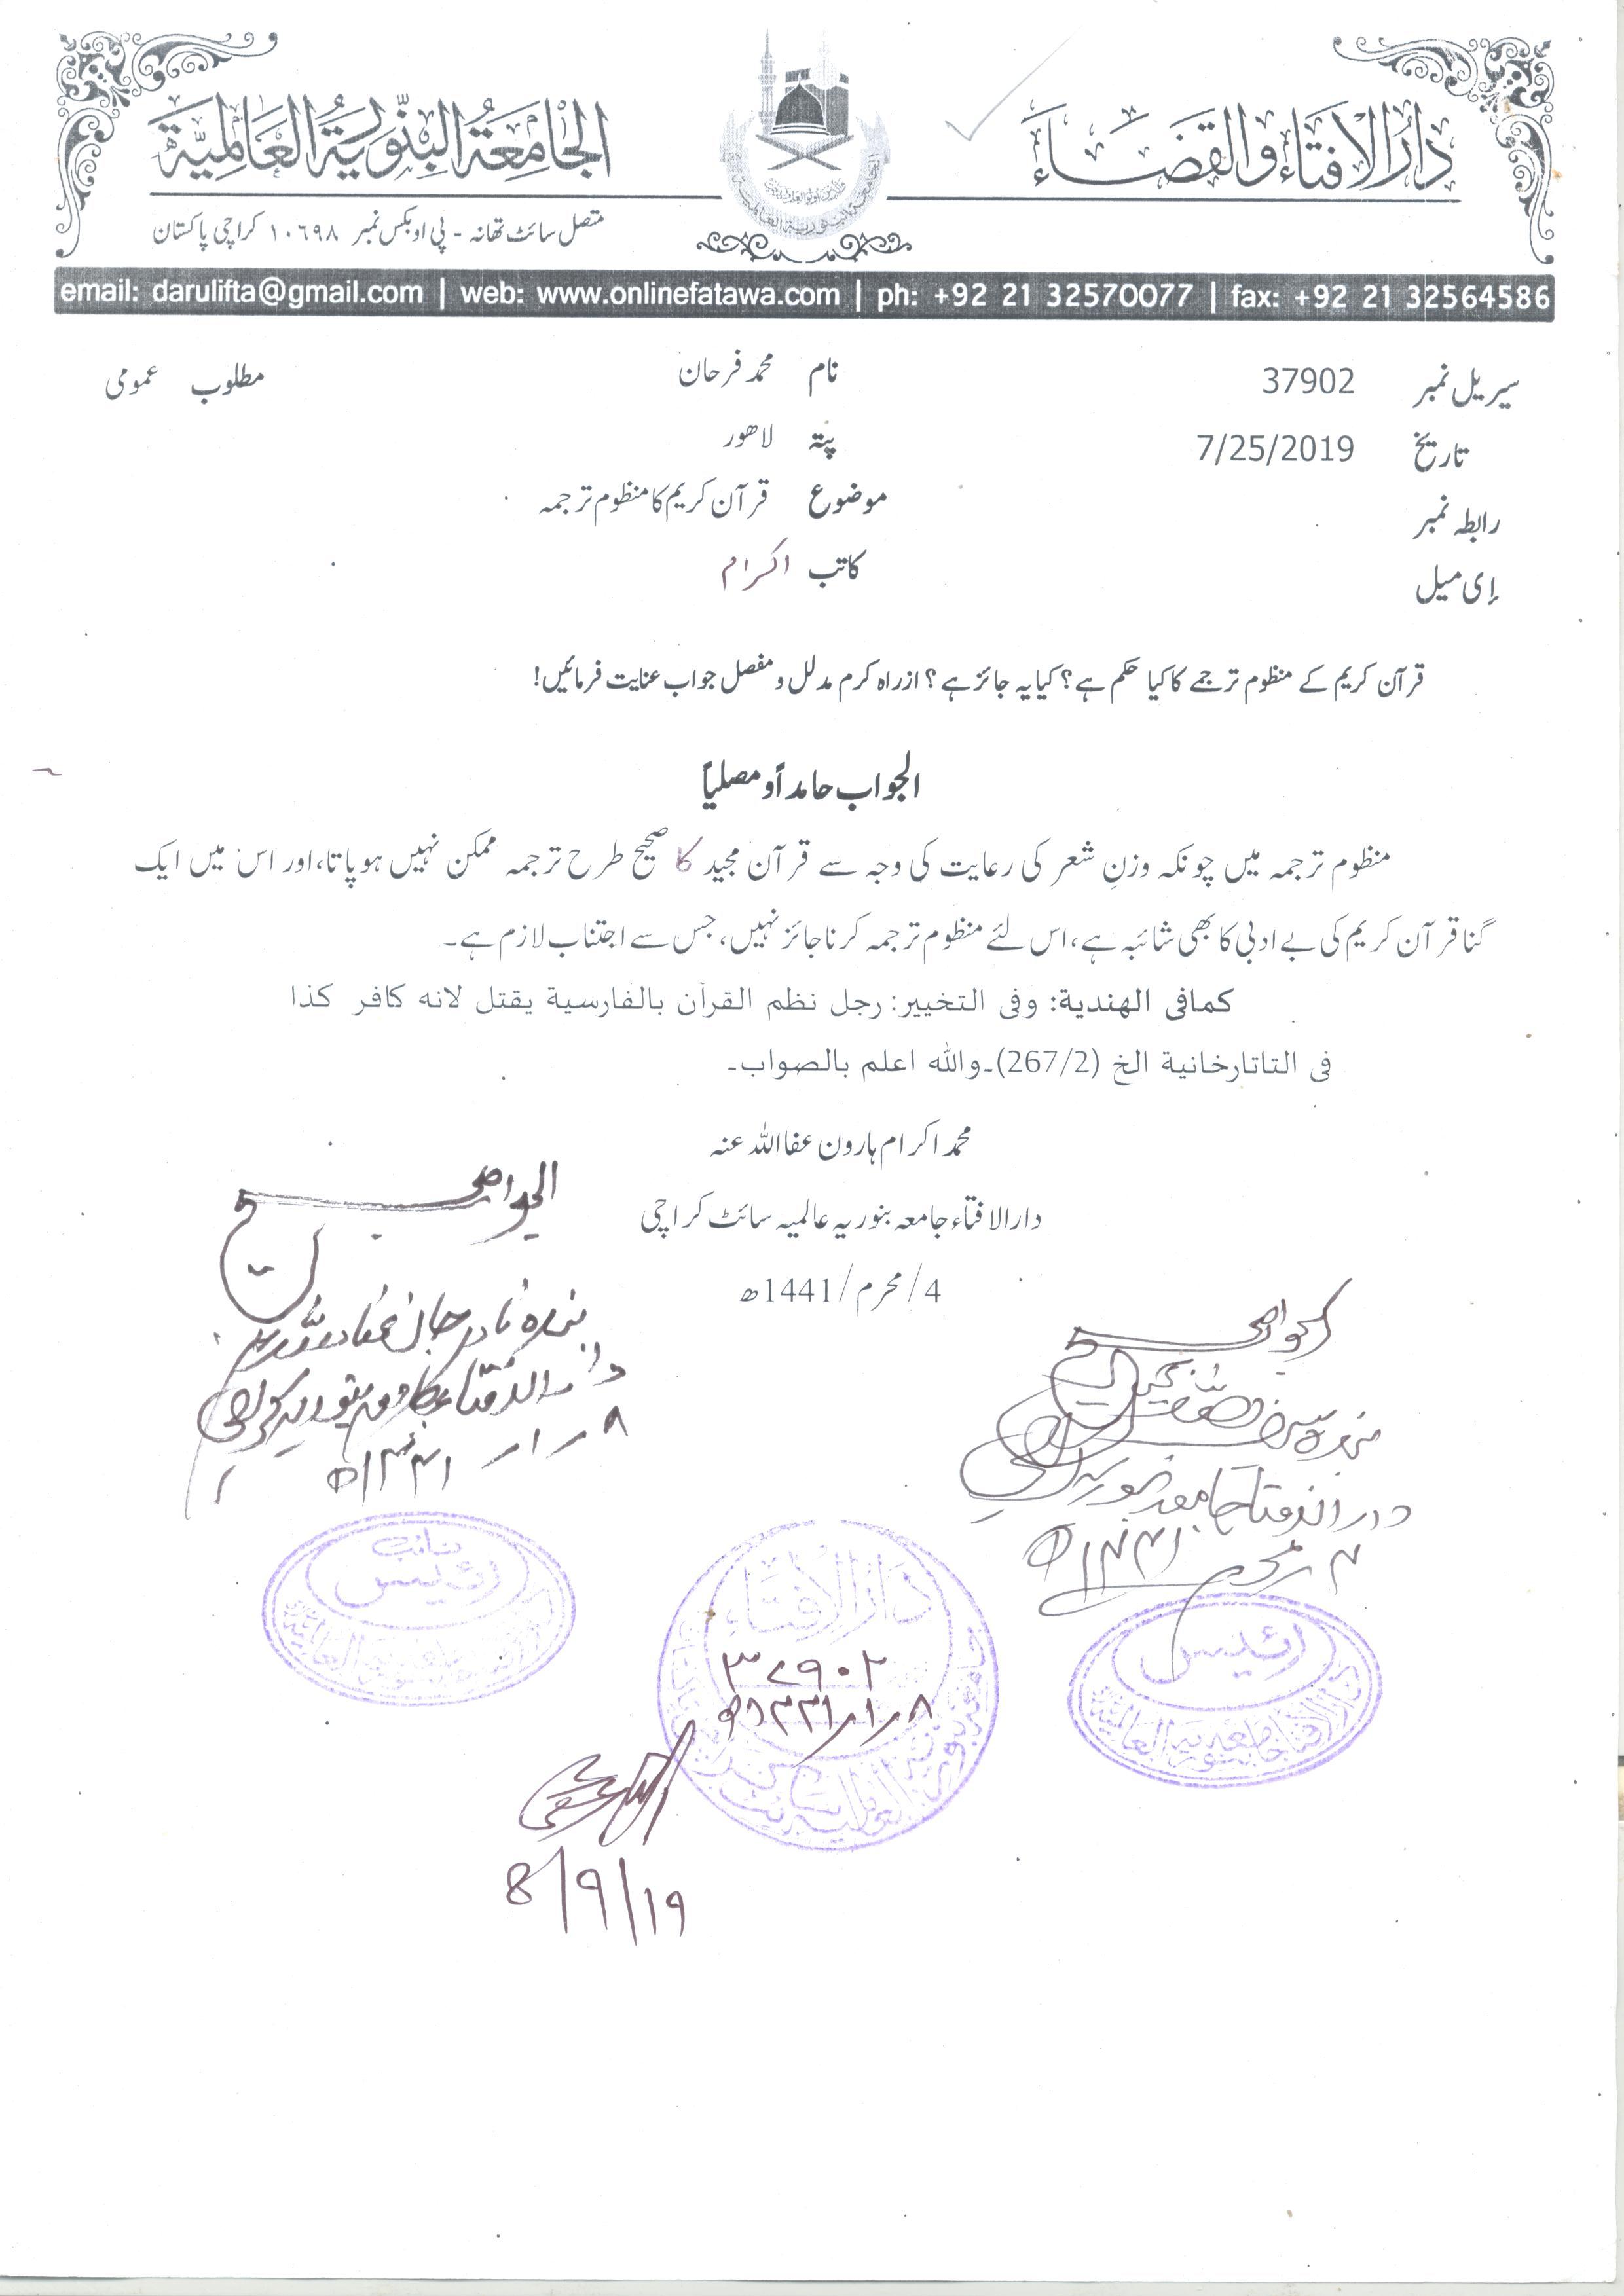 دَارُالاِفتَاء وَالقَضَاء
الجَامِعَةُ البِنّورِيَةُ العَالَمِيَّة
متصل سائٹ تھانہ - پی او بکس نمبر ۱۰۶۹۸ کراچی پاکستان
email: darulifta@gmail.com | web: www.onlinefatawa.com | ph: +92 21 32570077 | fax: +92 21 32564586
سیریل نمبر 37902 نام محمد فرحان مطلوب عمومی
تاریخ 7/25/2019 پتہ لاھور
رابطہ نمبر موضوع قرآن کریم کا منظوم ترجمہ
إی میل کاتب اکرام
قرآن کریم کے منظوم ترجمے کا کیا حکم ہے؟ کیا یہ جائز ہے؟ ازراہ کرم مدلل و مفصل جواب عنایت فرمائیں!
الجواب حامداً و مصلیاً
منظوم ترجمہ میں چونکہ وزنِ شعر کی رعایت کی وجہ سے قرآن مجید کا صحیح طرح ترجمہ ممکن نہیں ہو پاتا، اور اس میں ایک
گنا قرآن کریم کی بے ادبی کا بھی شائبہ ہے، اس لئے منظوم ترجمہ کرنا جائز نہیں، جس سے اجتناب لازم ہے۔
كمافى الهندية: وفى التخيير: رجل نظم القرآن بالفارسية يقتل لانه كافر كذا
فى التاتارخانية الخ (267/2)۔والله اعلم بالصواب۔
محمد اکرام ہارون عفا اللہ عنہ
دارالافتاء جامعہ بنوریہ عالمیہ سائٹ کراچی
4/محرم/1441ھ
الجواب صحیح
بندہ نادر جان عفا اللہ عنہ
دارالافتاء جامعہ بنوریہ کراچی
۸ / ۱ / ۱۴۴۱ھ
الجواب صحیح
بندہ
دارالافتاء جامعہ بنوریہ
۴ محرم ۱۴۴۱ھ
نائب
رئیس
دَارُالاِفتَاء
۳۷۹۰۲
۸/۱/۱۴۴۱ھ
رئیس
دارالافتا جامعہ بنوریہ العالمیہ
8/9/19